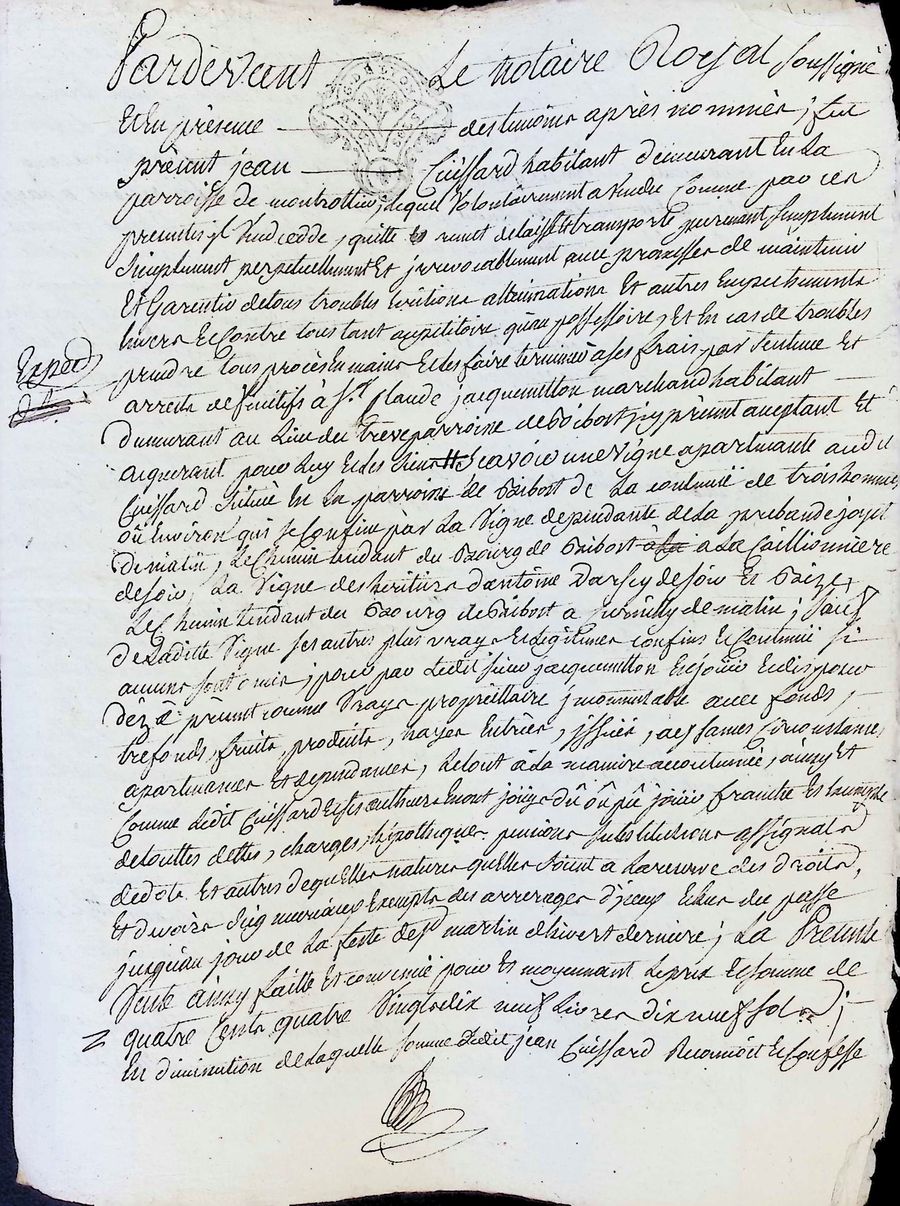 Pardevant Le notaire Royal soussigné
Et En présence des temoins après nommés ; fut
présent jean Cuissard habitant demeurant En La
parroisse de montrottier, lequel Volontairement a vendu comme par ces
presentes il vend, cedde, quitte et remet delaisse et transporte purement simplement
simplement perpetuellement Et jrrevocablement avec promesses de maintenir
Et Garentir de tous troubles Evictions allienations Et autres Empechements
Envers Et Contre tous tant au petitoire qu'au possessoire, Et En cas de troubles
prendre tous procès En mains Et les faire terminer a ses frais par sentence Et
arrets définitifs à Sr. Claude jacquemetton marchand habitant
Expéd
demeurant au Lieu du parroisse de jcy présent aceptant Et
aquerant pour Luy Et les siens scavoir une Vigne apartenante audit
Cuissard située En La parroisse de de La contenue de trois hommées
oû Environ qui se Confine par La Vigne dependante de La prebande
de matin, Le Chemin tendant du Bourg de a La Caillionnière
de soir, La Vigne des heritiers d'antoine Darfey de soir Et Bize,
Le Chemin tendant du Bourg de a de matin ; sauf
de Laditte Vigne ses autres plus vrays Et Legitimes confins Et Contenue si
aucuns sont omis ; pour par Ledit sieur jacquemetton En jouir Et disposer
dèz à présent comme Vrays propriettaire jncommutable avec fonds,
trefonds, fruits, produits, hayes Entrées, jssües, aysances Circonstances,
apartenances Et dependances, Le tout à La maniere accoutumée, ainsy Et
Comme Ledit Cuissard Et ses autheurs En ont joüys dû oû pû joüir, franche Et Exempte
de touttes dettes, charges, hipothèques, pensions substitutions assignats
de dots Et autres de quelles natures quelles soient a La reserve des Droits,
Et devoirs seigneuriaux Exempts des arrerages d'jceux Echus du passé
jusqu'au jour de La feste de St martin d'hivert derniere ; La Presente
Vente ainsy faitte Et convenüe pour Et moyennant Le prix Et somme de
quatre Cents quatre Vingts dix neuf Livres dix neuf sols ;
En diminution de Laquelle somme Ledit jean Cuissard Reconnoit Et Confesse